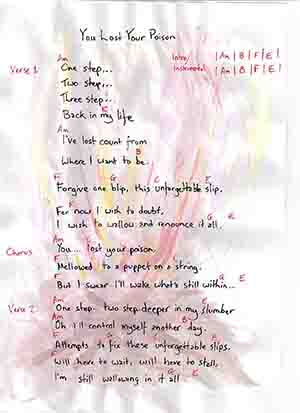 You Lost Your Poison
Intro/ |Am|B|F|E|
Instrumental |Am|B|F|E|
Verse 1
Am
One step...
Two step...
Three step...
E
Back in my life
Am
I've lost count from
B
Where I want to be.
F G C F
Forgive one blip, this unforgettable slip.
F
For now I wish to doubt,
G E
I wish to wallow and renounce it all.
Chorus
Am
You... lost your poison.
F
Mellowed to a puppet on a string.
F G E
But I swear I'll wake what's still within...
Verse 2
Am E
One step- two step deeper in my slumber
Am B
Oh I'll control myself another day.
F
Attempts to fix these unforgettable slips.
F
Will have to wait, will have to stall,
G E
I'm still wallowing in it all